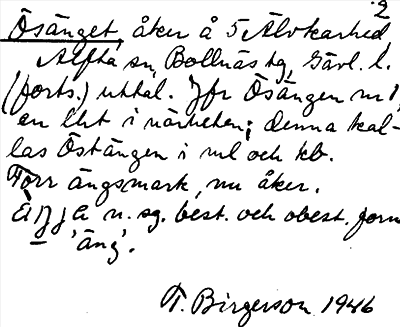 2
Ösänget, åker å 5 Älvkarhed
Alfta sn, Bollnäs tg, Gävl. l.
(forts.) uttal. Jfr Ösängen nr 1,
en lht i närheten; denna kal-
las Östängen i ml och kb.
Förr ängsmark, nu åker.
n. sg. best. och obest. form
– 'äng'.
T. Birgerson 1946